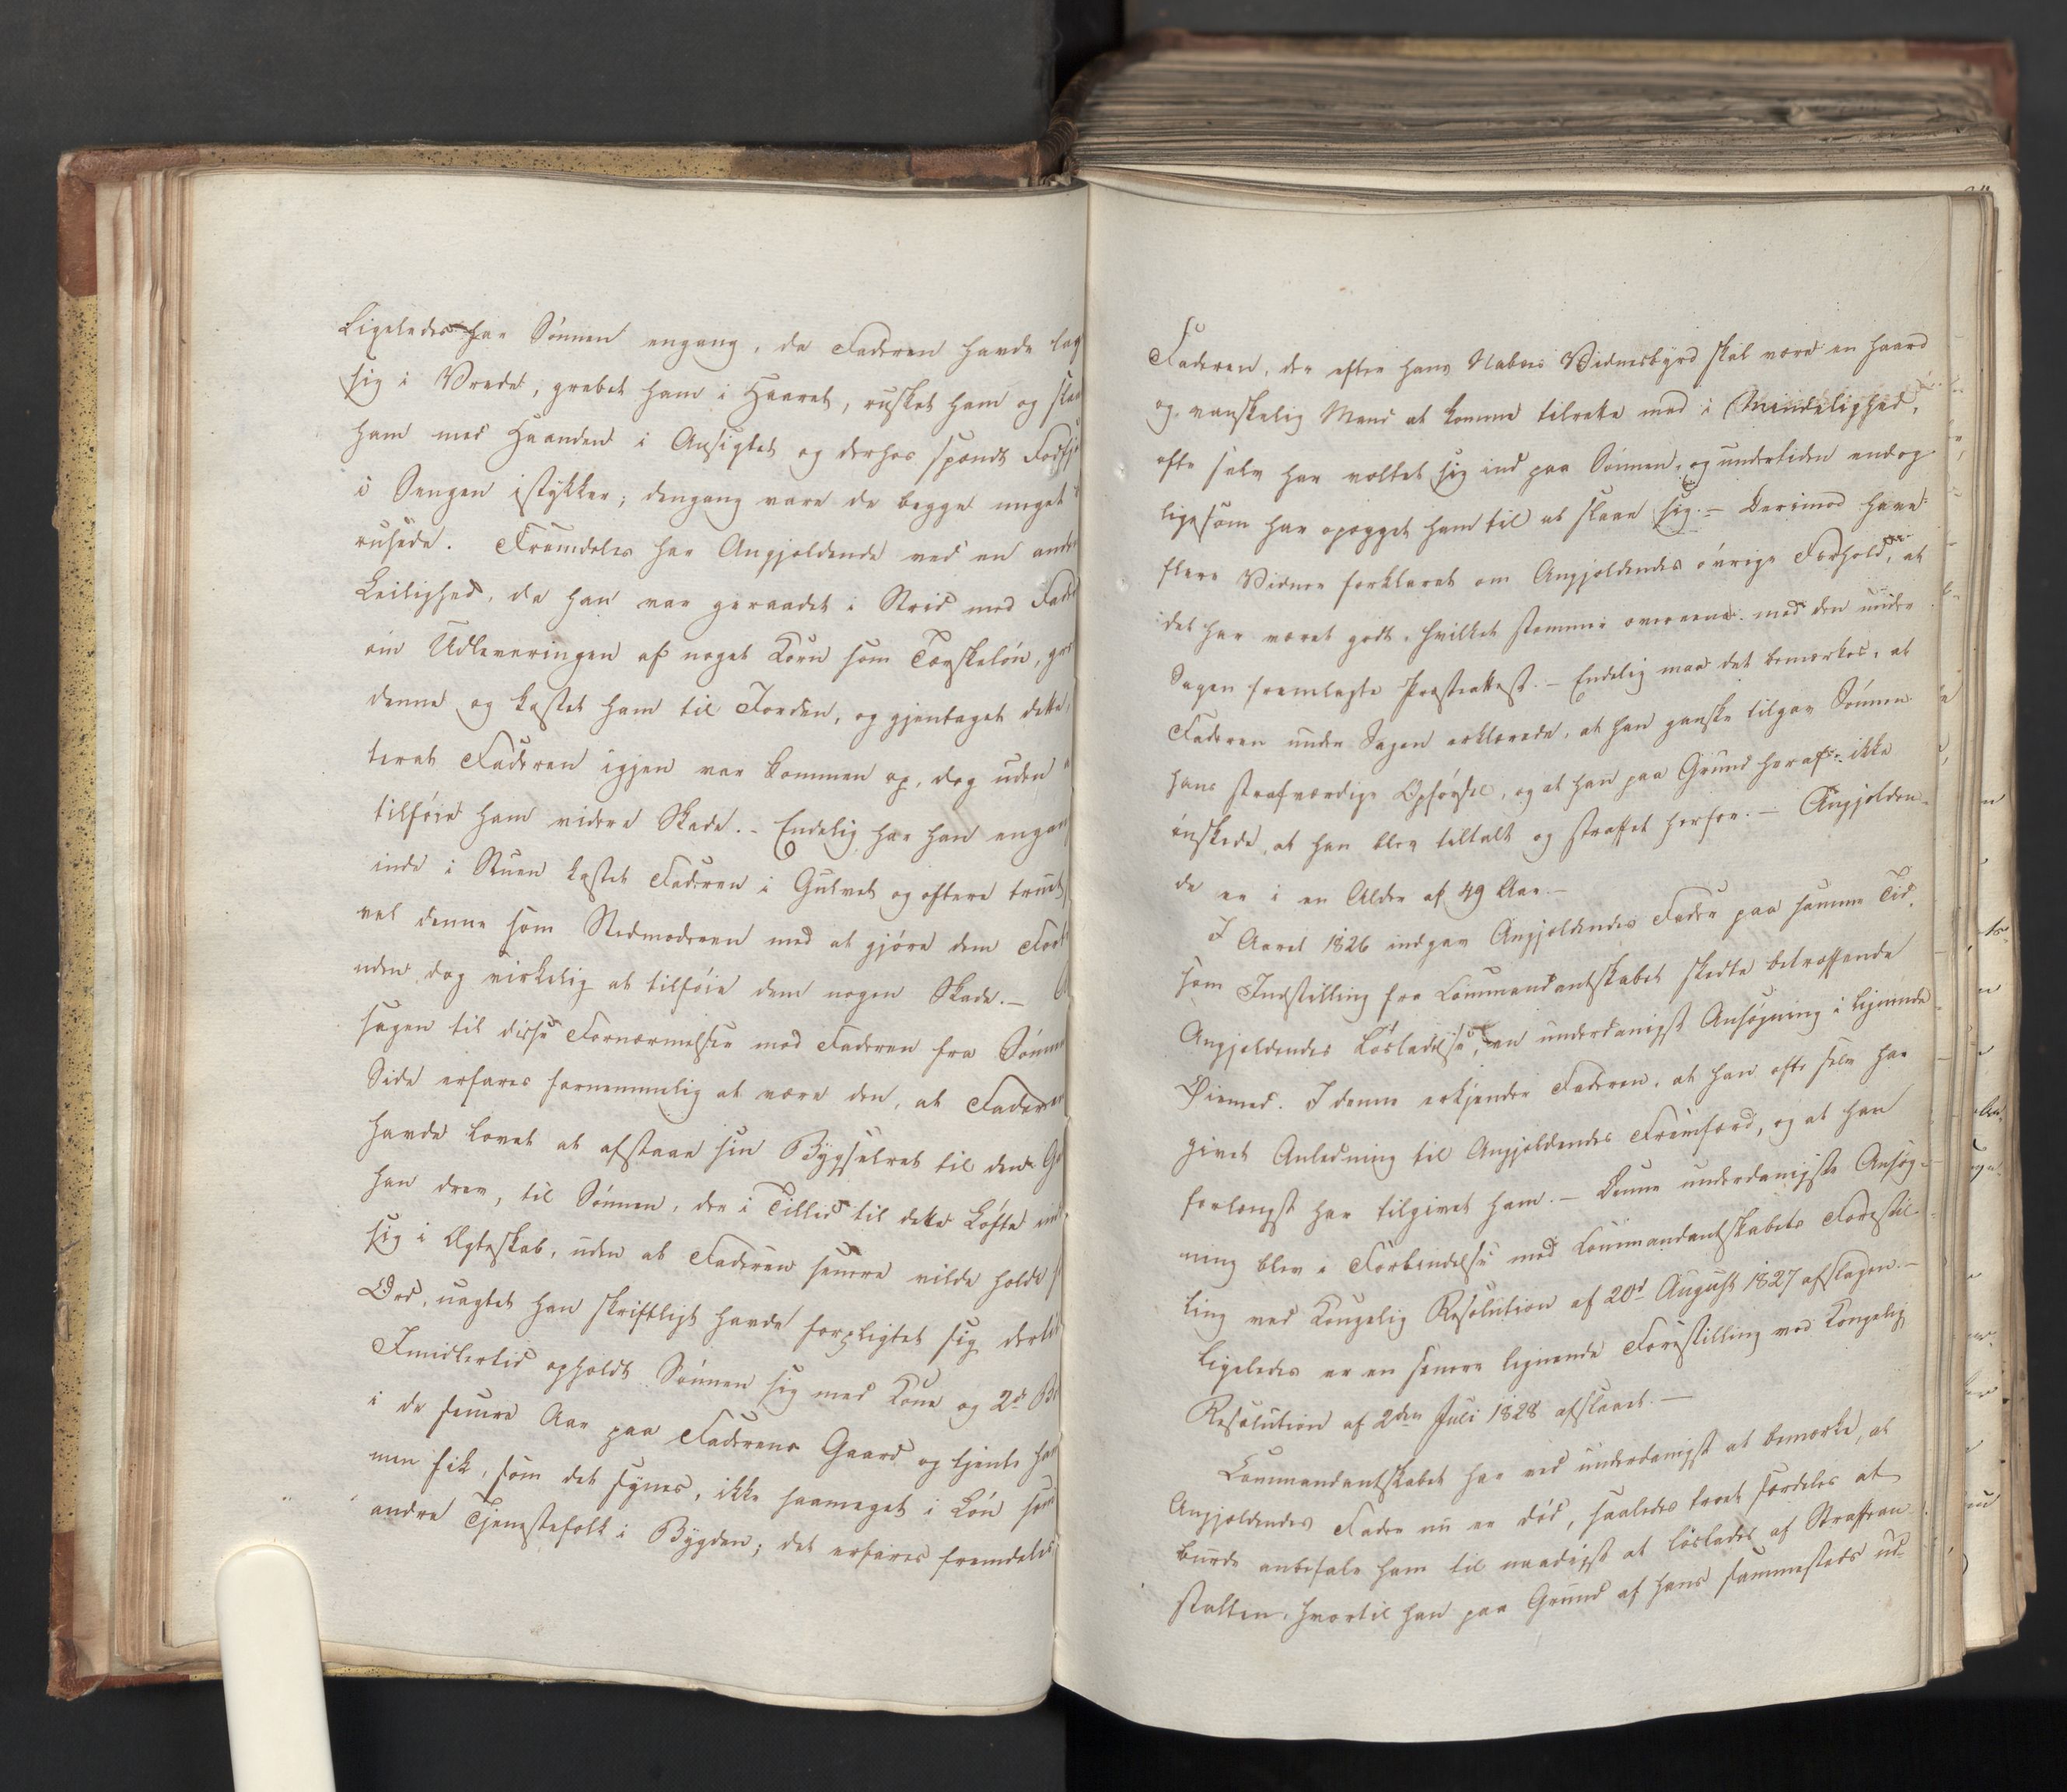 Ligeledes har Sønnen engang, da Faderen havde lag
sig i Vrede, grebet ham i Haaret, rusket ham og slaa
ham med Haanden i Ansigtet og derhos spændt Fodfj
i Sengen istykker; dengang vare de begge meget
rusede. Fremdeles har Angjældende ved en anden
Leilighed, da han var geraadet i Strid med Fader
om Udleveringen af noget Korn som Tærskeløn, gre
denne og kastet ham til Jorden, og gjentaget dette,
terat Faderen igjen var kommen op, dog uden
tilføie ham videre Skade. - Endelig har han engang
inde i Stuen kastet Faderen i Gulvet og oftere truet
vel denne som Stedmoderen med at gjøre dem Fort
uden dog virkelig at tilføie dem nogen Skade. -
sagen til disse Fornærmelser mod Faderen fra Sønnen
Side erfares fornemmelig at være den, at Faderen
havde lovet at afstaae sin Bygselret til den Ga
han drev, til Sønnen, der i Tillid til dette Løfte ind
sig i Ægteskab, uden at Faderen senere vilde holde s
Ord, uagtet han skriftligt havde forpligtet sig dertil
Imidlertid opholdt Sønnen sig med Kone og 2de Bø
i de senere Aar paa Faderens Gaard og tjente ham
men fik, som det synes, ikke saameget i Løn som
andre Tjenestefolk i Bygden; det erfares fremdeles
Faderen, der efter hans Naboers Vidnesbyrd skal være en haard
og vanskelig Mand at komme tilrette med i Mindelighed,
ofte selv har væltet sig ind paa Sønnen, og undertiden endog
ligesom har opægget ham til at slaae sig. - Derimod have
flere Vidner forklaret om Angjældendes øvrige Forhold, at
det har været godt, hvilket stemmer overeens med den under
Sagen fremlagte Præsteattest. - Endelig maa det bemærkes, at
Faderen under Sagen erklærede, at han ganske tilgav Sønnen
hans strafværdige Opførsel, og at han paa Grund heraf ikke
ønskede, at han blev tiltalt og straffet herfor. - Angjælden-
de er i en Alder af 49 Aar. -
I Aaret 1826 indgav Angjældendes Fader paa samme Tid,
som Indstilling fra Commandantskabet skedte betræffende
Angjældendes Løsladelse, en underdanigst Ansøgning i lignende
Øiemed. I denne erkjender Faderen, at han ofte selv har
givet Anledning til Angjældendes Fremfærd, og at han
forlængst har tilgivet ham. - Denne underdanigste Ansøg-
ning blev i Forbindelse med Commandantskabets Forestil-
ling ved Kongelig Resolution af 20d August 1827 afslagen. -
Ligeledes er en senere lignende Forestilling ved Kongelig
Resolution af 2den Juli 1828 afslaaet. -
Commandantskabet har ved underdanigst at bemærke, at
Angjældendes Fader nu er død, saaledes troet fordeles at
burde anbefale ham til naadigst at løslades af Straffean-
stalten, hvortil han paa Grund af hans sammesteds ud-